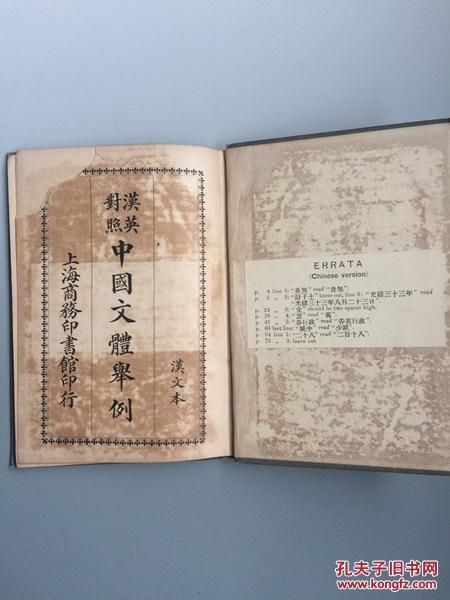 漢英
對照
中國文體舉例
漢文本
上海商務印書館印行
ERRATA
(Chinese version)
p. 4 line 1: read
leave out, line 6: "光緖三十三年" read
"光緖三十三年八月二十三日"
should be two spaces high.
read
"各行政" read "各省行政".
p. 60 last line: "減少" read "少減".
p. 64 line 1: "二十八" read "二百十八".
p. 79 „ 3: leave out
孔夫子旧书网
www.kongfz.com